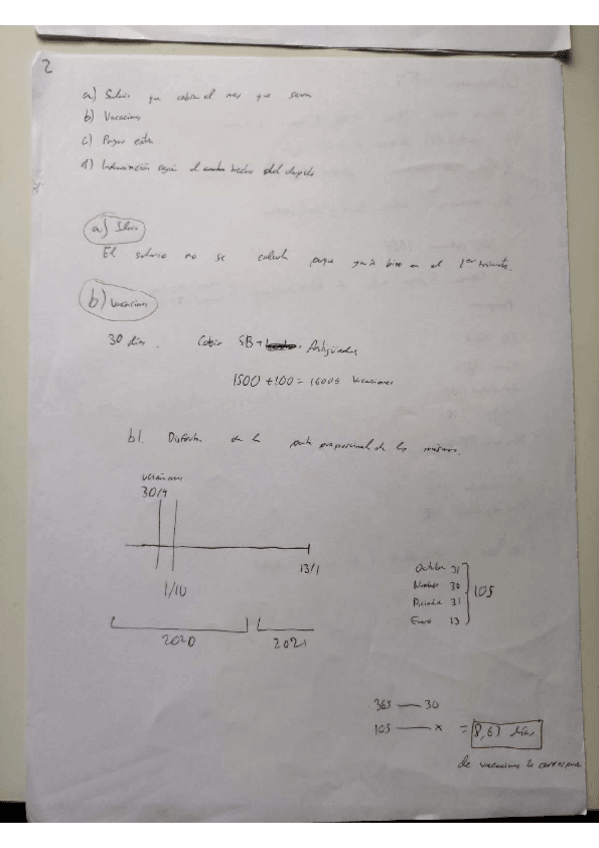 2
a) Salario que cobra el mes que
b) Vacaciones
c) Pagas extra
d) Indemnización según el hecho del despido
a) Salario
El salario no se calcula porque ya se hizo en el 1er
b) Vacaciones
30 días. Cobra SB + Antigüedad
1500 + 100 = 1600$ Vacaciones
b1. Disfruta de la parte proporcional de las mismas.
Vacaciones
30/9
13/1
1/10
2020 2021
Octubre 31
Noviembre 30
Diciembre 31
Enero 13
105
365 — 30
105 — x = 8,63 días
de vacaciones le